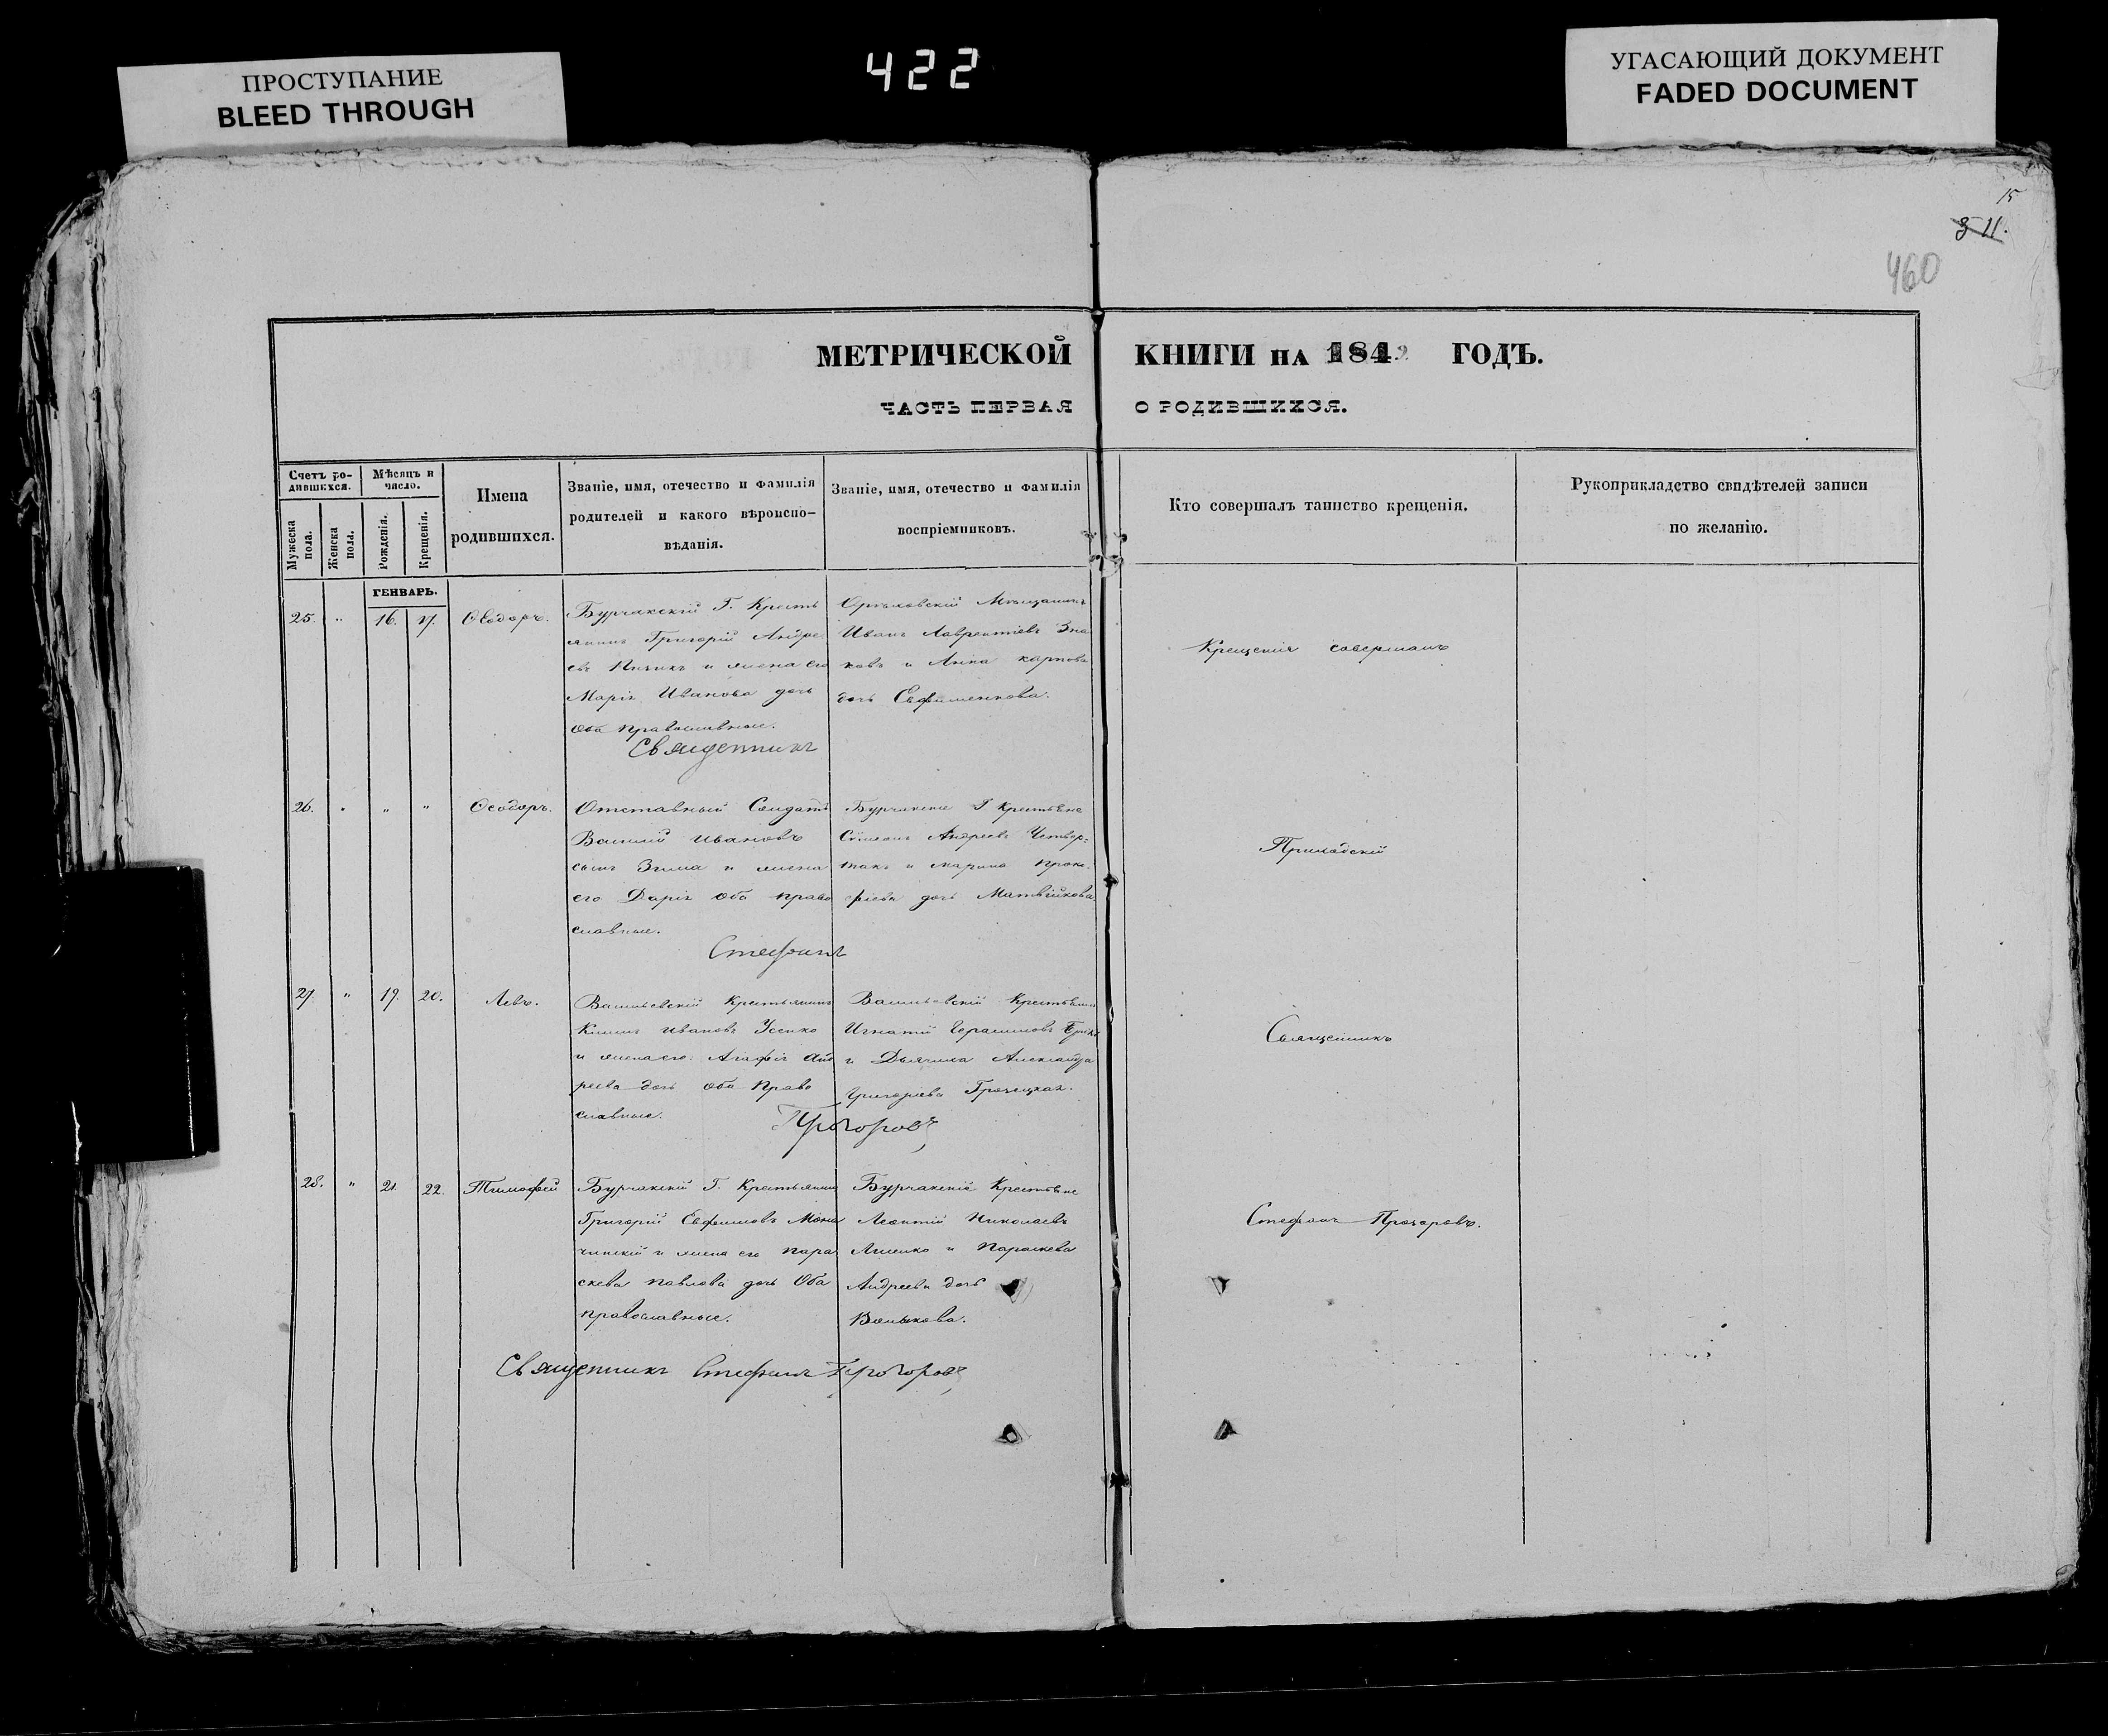 ПРОСТУПАНИЕ
BLEED THROUGH
422
УГАСАЮЩИЙ ДОКУМЕНТ
FADED DOCUMENT
15
311.
460
МЕТРИЧЕСКОЙ КНИГИ НА 1842 ГОДЪ.
ЧАСТЬ ПЕРВАЯ О РОДИВШИХСЯ.
Счетъ ро-
дившихся.
Мужеска пола.
Женска пола.
Мѣсяцъ и
число.
Рожденія.
Крещенія.
Имена
родившихся.
Званіе, имя, отечество и фамилія
родителей и какого вѣроиспо-
вѣданія.
Званіе, имя, отечество и фамилія
воспріемниковъ.
Кто совершалъ таинство крещенія.
Рукоприкладство свидѣтелей записи
по желанію.
ГЕНВАРЬ.
25. " 16. 17. Ѳеодоръ.
Бурчакскій Г. Кресть
янинъ Григорій Андре
евъ и жена его
Марія Иванова дочь
Оба православные.
Орѣховскій Мѣщанинъ
Иванъ Лаврентіевъ Зна
ковъ и Анна карпова
дочь Евфименкова.
Крещенія совершалъ
Священникъ
26. " " " Ѳеодоръ.
Отставный Солдатъ
Василій Ивановъ
сынъ Зима и жена
его Дарія Оба право
славные.
Бурчакскіе Г. Крестьяне
Сѵмеонъ Андреевъ Четвер-
такъ и Марина Проко-
фіева дочь Матвійкова.
Приходскій
Стефанъ
27. " 19. 20. Левъ.
Васильевскій Крестьянинъ
Ивановъ Усенко
и жена его Агафія Анд
реева дочь Оба Право
славные.
Васильевскій Крестьянинъ
Игнатій Герасимовъ
и Дьячиха Александра
Григорьева
Священникъ
Прохоровъ
28. " 21. 22. Тимофей
Бурчакскій Г. Крестьянинъ
Григорій Евфимовъ Мона
чинскій и жена его Пара
скева Павлова дочь Оба
православные.
Бурчакскіе Крестьяне
Леонтій Николаевъ
и Параскева
Андреева дочь
Волькова.
Стефанъ Прохоровъ.
Священникъ Стефанъ Прохоровъ